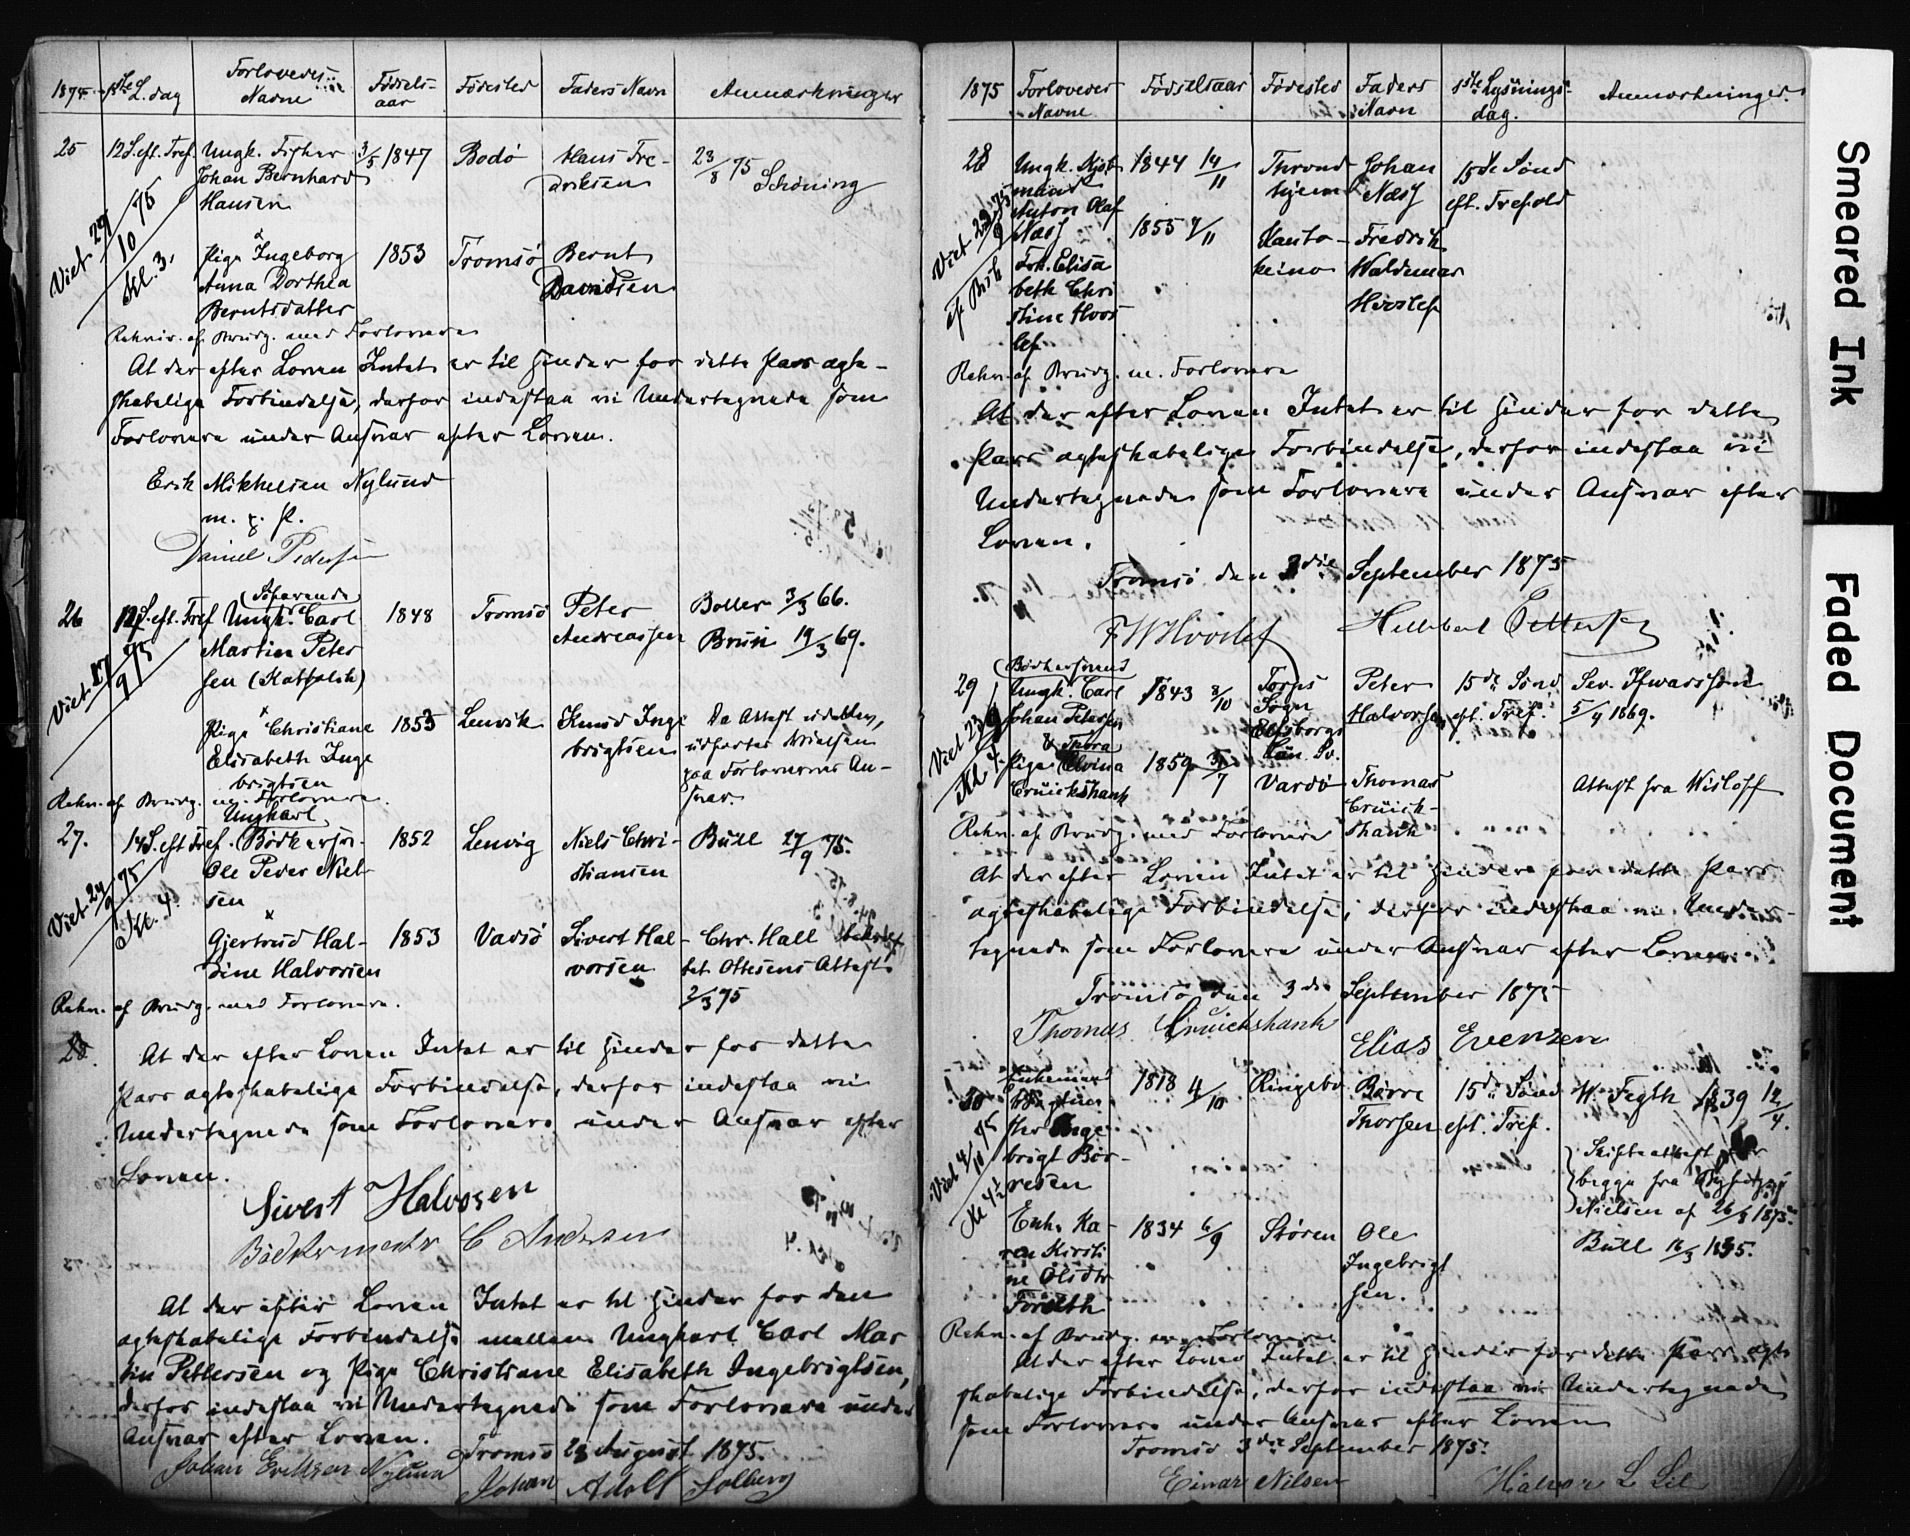 1875 1ste L.dag Forlovedes Navne Fødsels-aar Fødested Faders Navn Anmærkninger
25 12 S. eft. Tref. Ungk. Fisker 3/5 1847 Bodø Hans Fre- 23/8 75
Johan Bernhard driksen Schöning
Hansen
Viet 29/10 75
Kl. 3.
Pige Ingeborg 1853 Tromsø Bernt
Anna Dorthea Davidsen
Berntsdatter
Rekvir. af Brudg. med Forlovere
At der efter Loven Intet er til Hinder for dette Pars ægte-
skabelige Forbindelse, derfor indestaa vi Undertegnede som
Forlovere under Ansvar efter Loven.
Erik Mikkelsen Nylund
m. p. P.
Daniel Pedersen
26 12 S. eft. Tref. Ungk. Carl 1848 Tromsø Peter Boller 3/3 66.
Martin Peter Andreassen Brun 19/3 69.
sen (Katholik)
Viet 17/9 75
Pige Christiane 1853 Lenvik Knud Inge Da Attest udebliver,
Elisabeth Inge brigtsen
brigtsen paa Forlovernes An-
svar.
Rekv. af Brudg. m. Forlovere.
Ungkarl
27. 14 S. eft Tref. Bødkersv. 1852 Lenvig Niels Chri- Bull 17/9 75.
Ole Peder Niel- stiansen
sen
Viet 24/9 75
Kl. 4.
Gjertrud Hal- 1853 Vadsø Sivert Hal- Chr. Hall
dine Halvorsen vorsen Ottesens Attest
2/3 75
Rekv. af Brudg. med Forlovere.
28. At der efter Loven Intet er til Hinder for dette
Pars ægteskabelige Forbindelse, derfor indestaa vi
Undertegnede som Forlovere under Ansvar efter
Loven.
Sivert Halvorsen
Bødkermester C Andersen
At der efter Loven Intet er til Hinder for den
ægteskabelige Forbindelse mellem Ungkarl Carl Mar
tin Pettersen og Pige Christiane Elisabeth Ingebrigtsen,
derfor indestaa vi Undertegnede som Forlovere under
Ansvar efter Loven. Tromsø 23 August 1875.
Johan Eriksen Nylund Johan Adolf Solberg
1875 Forlovedes Navne Fødselsaar Fødested Faders Navn 1ste Lysnings-dag. Anmærkninger.
28 Ungk. Kjøb 1844 14/11 Thrond Johan 15de Sønd
mand hjem Næss eft. Trefold
Anton Olaf
Næss 1855 7/11 Kauto- Fredrik
Frk. Elisa keino Waldemar
beth Chri Hvoslef
stine Hvos
lef
Rekv. af Brudg. m. Forlovere
At der efter Loven Intet er til Hinder for dette
Pars ægteskabelige Forbindelse, derfor indestaa vi
Undertegnede som Forlovere under Ansvar efter
Loven.
Tromsø den 3die September 1875
F W Hvoslef
29 Ungk. Carl 1843 8/10 Torps Peter 15de Sønd Sev. Ifwarsson
Johan Petersen Sogn Halvorsen eft. Tref. 5/4 1869.
Elfsborgs
Län. Sv.
Viet 23/9
Kl 4.
& Thora
Pige Elvina 1859 Vardø Thomas Attest fra Wisløff
Cruickshank Cruick-
shank
Rekv. af Brudg. med Forlovere
At der efter Loven Intet er til Hinder for dette Pars
ægteskabelige Forbindelse, derfor indestaa vi Under-
tegnede som Forlovere under Ansvar efter Loven
Tromsø den 3die September 1875
Thomas Cruickshank Elias Evensen
30 Enkemand 1818 4/10 Ringebo Børre 15de Sønd H. Fegth 1839 12/4.
Inge- Thorsen eft. Tref.
brigt Bør-
resen
Viet 4/10 75
Kl 4½
Skifteattest for
begge fra
Nielsen af 26/8 1875.
Enke Ka- 1834 6/9 Støren Ole Bull 16/3
ren Kirsti Ingebrigt
ne Olsdtr sen.
Forseth
Rekv. af Brudg. m. Forlovere
At der efter Loven Intet er til Hinder for dette Pars ægte
skabelige Forbindelse, derfor indestaa vi Undertegnede
som Forlovere under Ansvar efter Loven
Tromsø 3die September 1875.
Einar Nilsen Halvor L. Lil
Smeared Ink
Faded Document